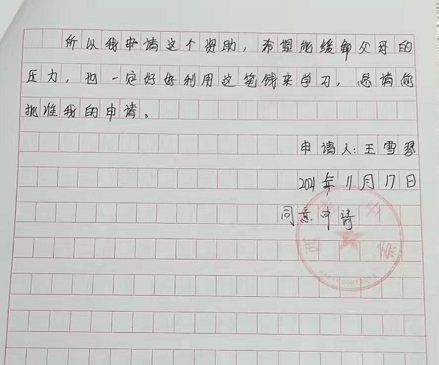 所以我申请这个资助，希望能缓解父母的
压力，也一定好好利用这笔钱来学习，恳请您
批准我的申请。
申请人：王雪琴
2021年11月17日
同意申请